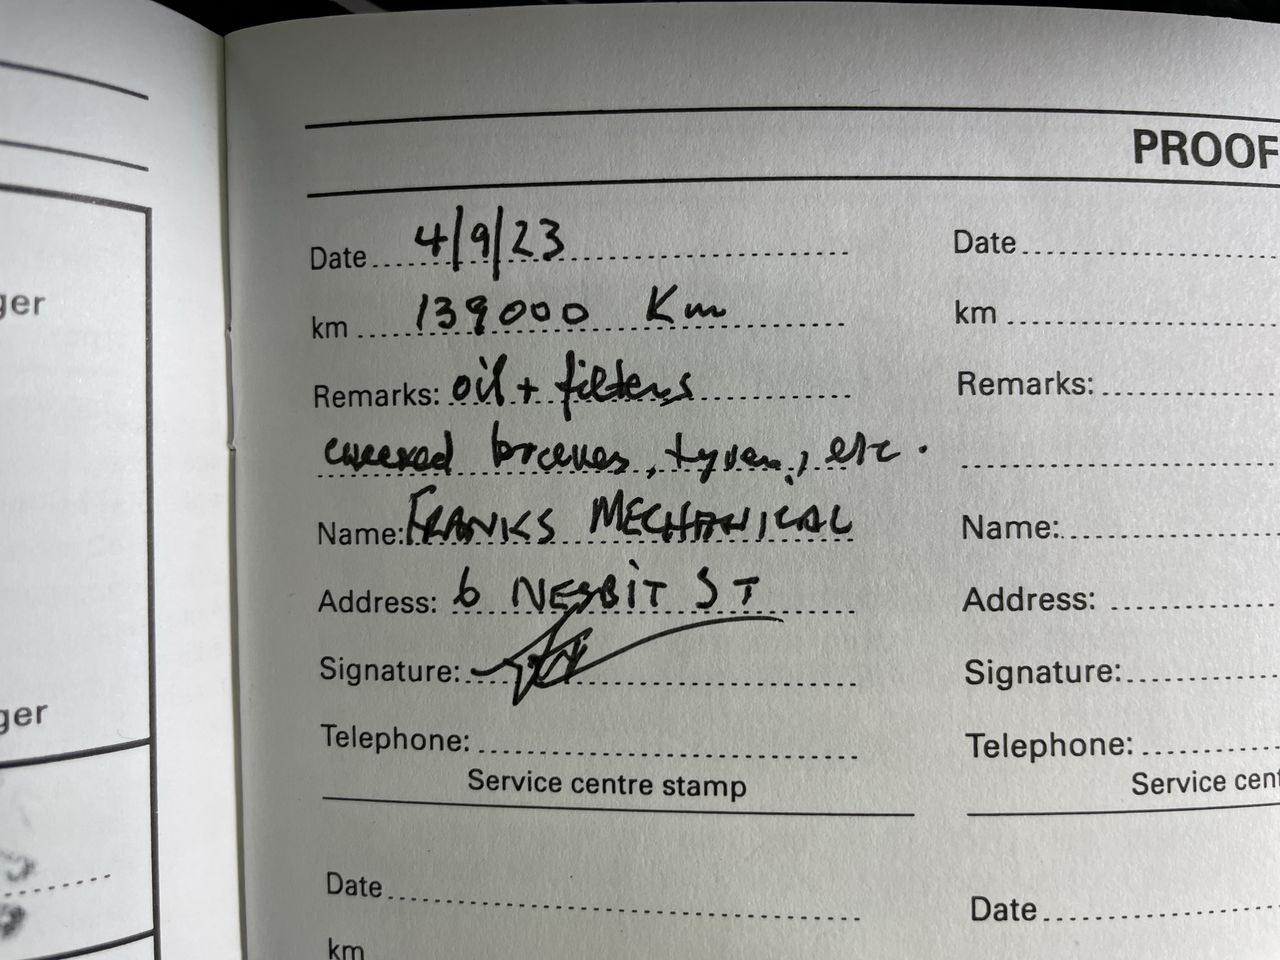 PROOF
Date 4/9/23
km 139000 Km
Remarks: oil + filters
checked brakes, tyres, etc.
Name: FRANKS MECHANICAL
Address: 6 NESBIT ST
Signature:
Telephone:
Service centre stamp
Date
km
Date
km
Remarks:
Name:
Address:
Signature:
Telephone:
Service cent
Date
ger
ger